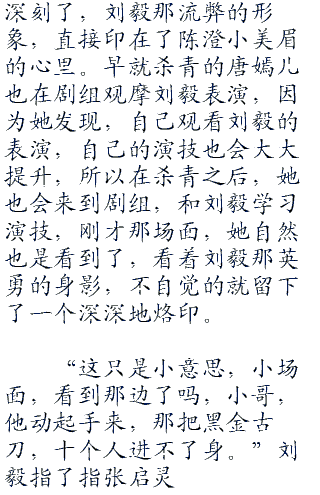 深刻了，刘毅那流弊的形
象，直接印在了陈澄小美眉
的心里。早就杀青的唐嫣儿
也在剧组观摩刘毅表演，因
为她发现，自己观看刘毅的
表演，自己的演技也会大大
提升，所以在杀青之后，她
也会来到剧组，和刘毅学习
演技，刚才那场面，她自然
也是看到了，看着刘毅那英
勇的身影，不自觉的就留下
了一个深深地烙印。
“这只是小意思，小场
面，看到那边了吗，小哥，
他动起手来，那把黑金古
刀，十个人进不了身。”刘
毅指了指张启灵